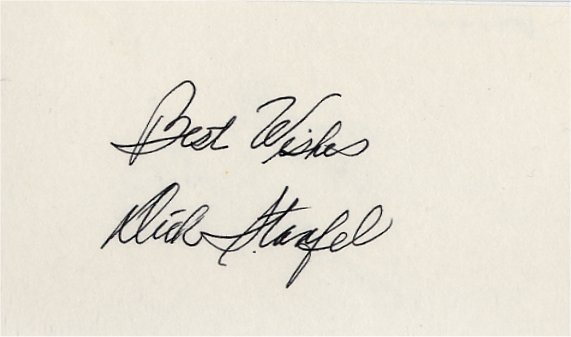 Best Wishes
Dick Stanfel